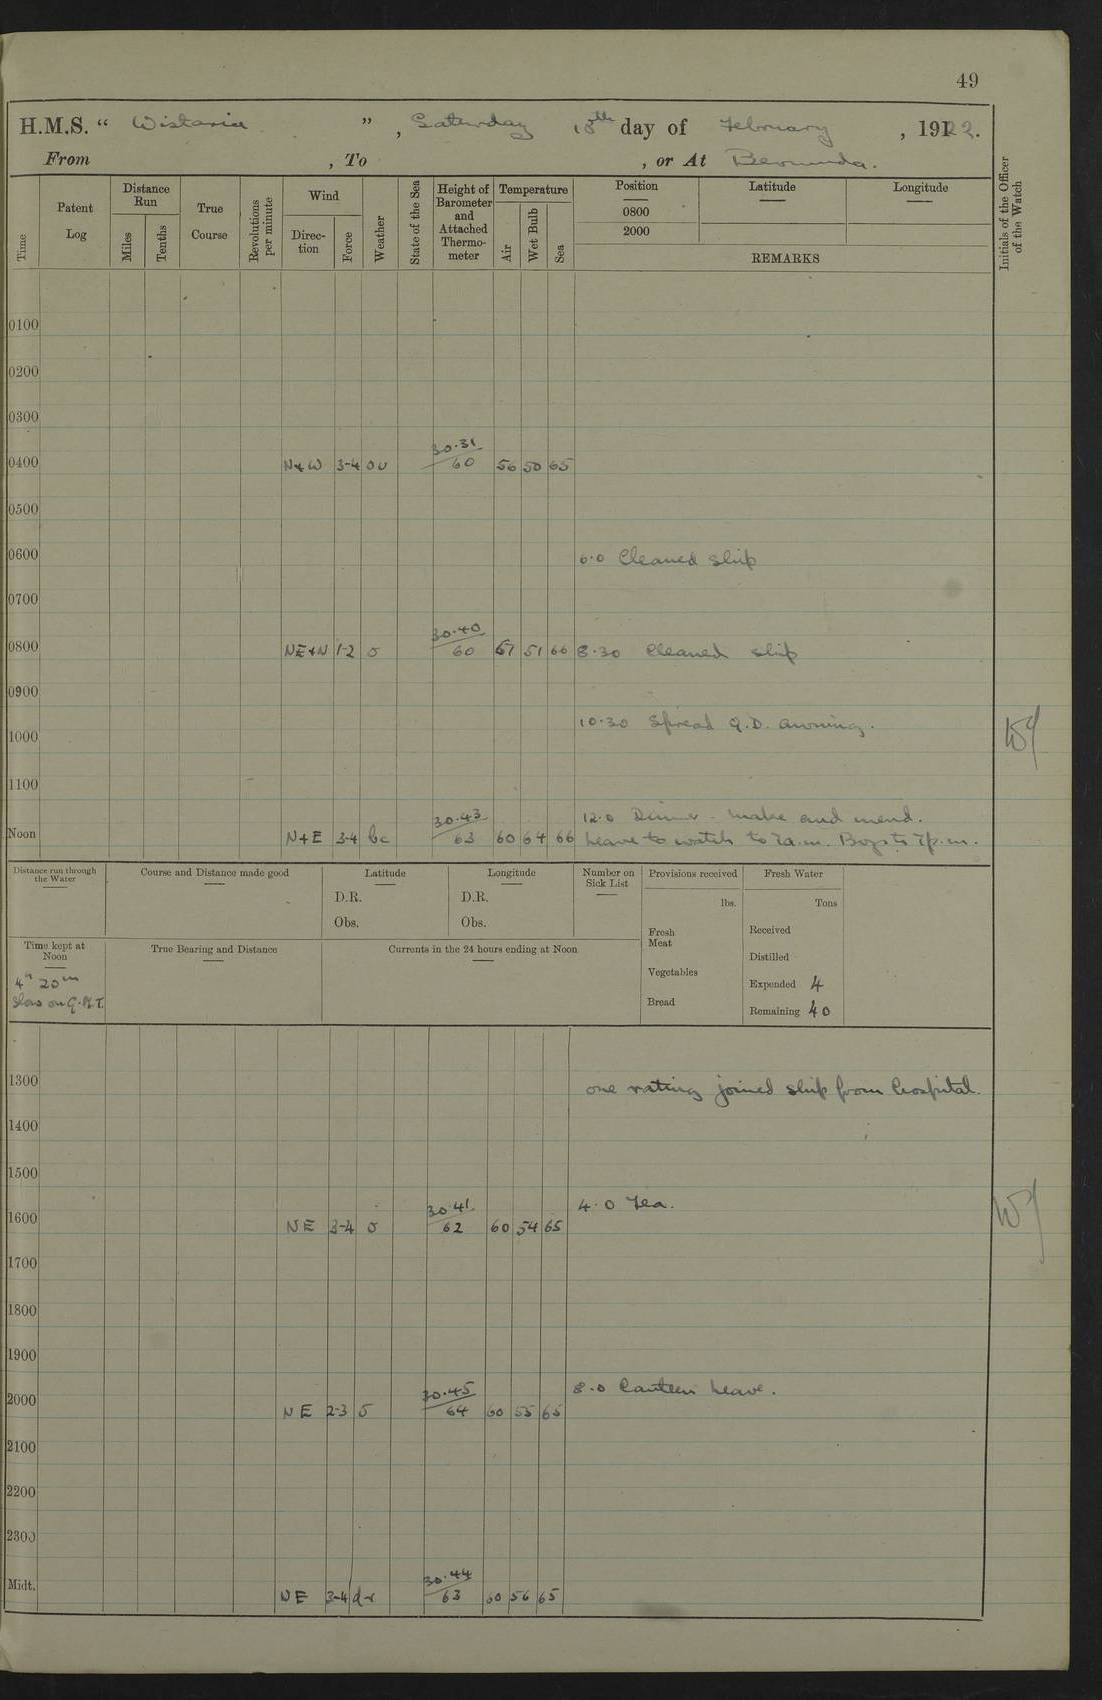 49
H.M.S. “ Wistaria ” , Saturday 18th day of February , 1922.
From , To , or At Bermuda.
Time
Patent Log
Distance Run
Miles
Tenths
True Course
Revolutions per minute
Wind
Direc-tion
Force
Weather
State of the Sea
Height of Barometer and Attached Thermo-meter
Temperature
Air
Wet Bulb
Sea
Position
0800
2000
Latitude
Longitude
REMARKS
Initials of the Officer of the Watch
0100
0200
0300
30.31
0400 N+W 3-4 ou 60 56 50 65
0500
0600 6.0 Cleaned ship
0700
30.40
0800 NE+N 1-2 o 60 51 66 8.30 Cleaned ship
0900
10.30 Spread Q.D. awning.
1000
1100
30.43 12.0 Dinner. make and mend.
Noon N+E 3-4 bc 63 60 64 66 Leave to watch to 7a.m. Boys to 7p.m.
Distance run through the Water
Course and Distance made good
Latitude
D.R.
Obs.
Longitude
D.R.
Obs.
Number on Sick List
Provisions received
lbs.
Fresh Meat
Vegetables
Bread
Fresh Water
Tons
Received
Distilled
Expended 4
Remaining 40
Time kept at Noon
4h 20m
slow on G.M.T.
True Bearing and Distance
Currents in the 24 hours ending at Noon
1300 one rating joined ship from hospital.
1400
1500
30.41 4.0 Tea.
1600 NE 3-4 o 62 60 54 65
1700
1800
1900
30.45 8.0 Canteen leave.
2000 NE 2-3 o 64 60 55 65
2100
2200
2300
30.44
Midt. NE 3-4 63 60 56 65